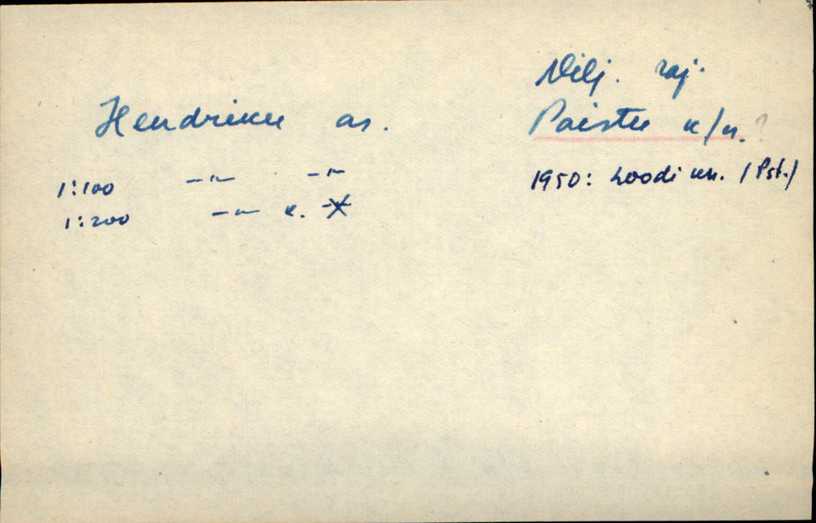 Vilj. raj.
Hendriku as.
Paistu k/n. ?
1:100 -"- -"-
1950: Loodi kn. (Pst.)
1:200 -"- k.